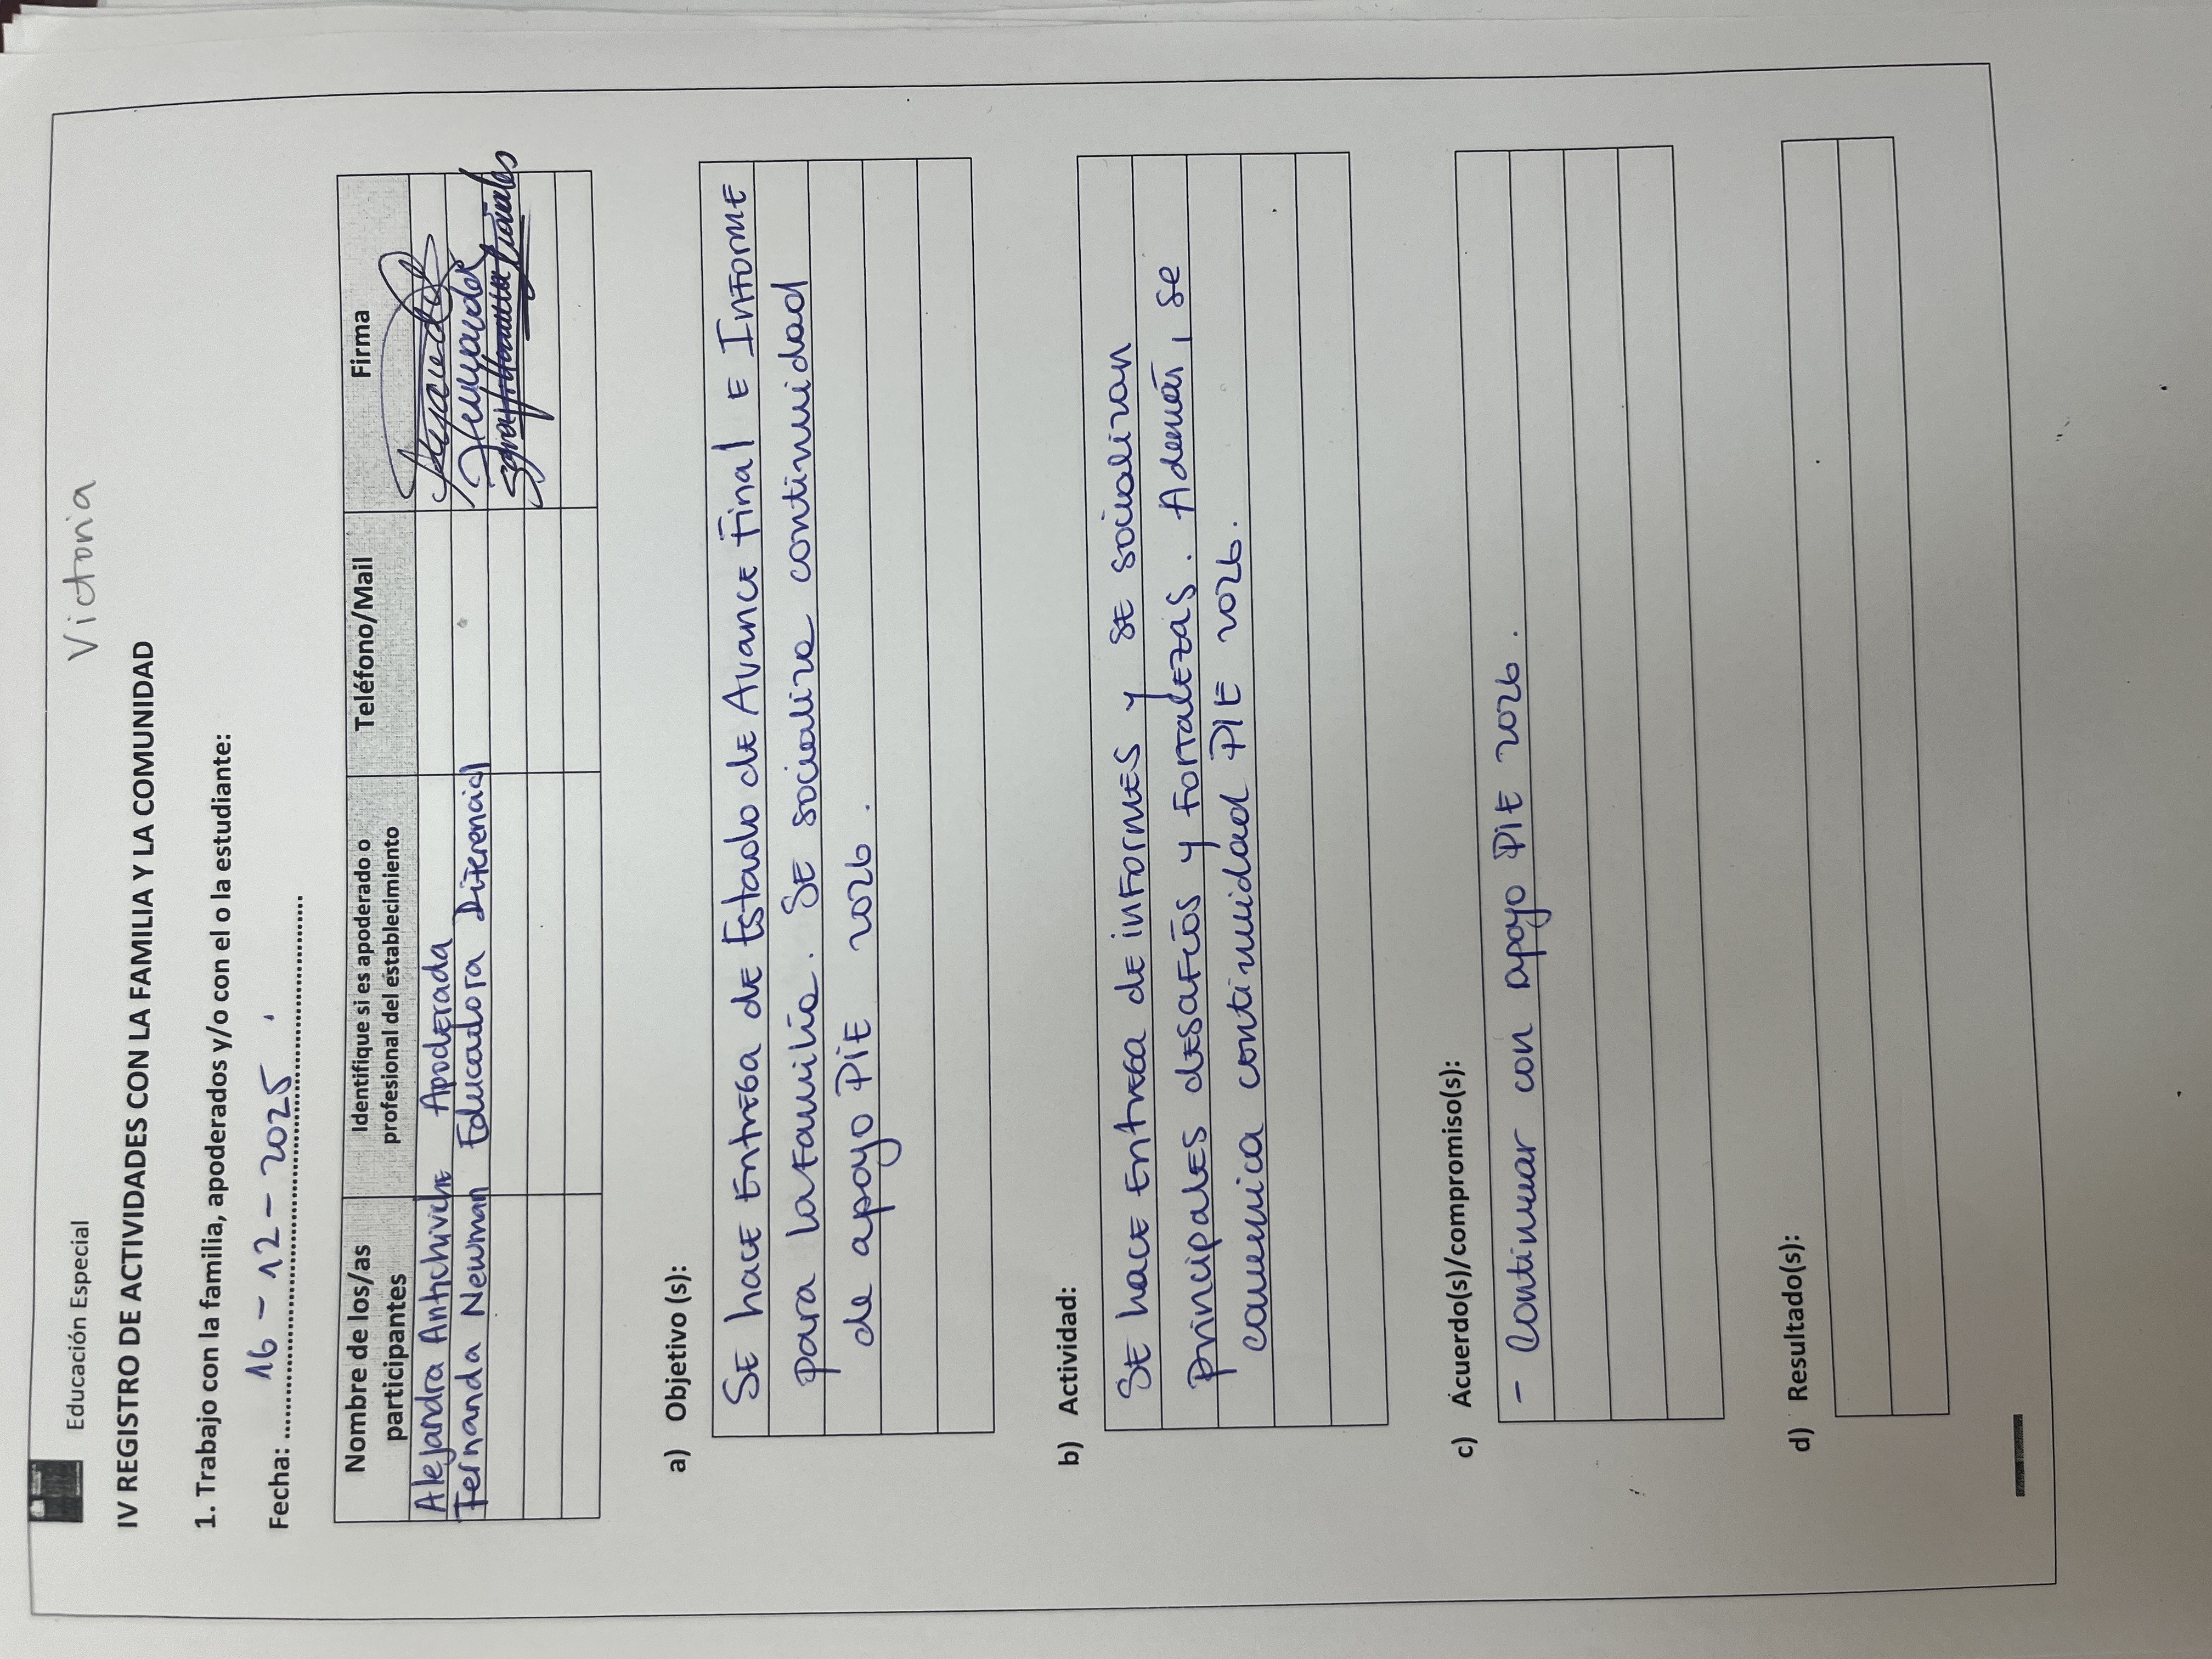 Victoria
Educación Especial
IV REGISTRO DE ACTIVIDADES CON LA FAMILIA Y LA COMUNIDAD
1. Trabajo con la familia, apoderados y/o con el o la estudiante:
Fecha: 16 - 12 - 2025.
Nombre de los/as participantes | Identifique si es apoderado o profesional del establecimiento | Teléfono/Mail | Firma
Alejandra Antichiviche Apoderada
Fernanda Neuman Educadora Diferencial
a) Objetivo (s):
SE hace Entrega de Estado de Avance Final E Informe
para la Familia. SE socializa continuidad
de apoyo PIE 2026.
b) Actividad:
SE hace Entrega de informes y SE socializan
principales desafíos y fortalezas. Además, se
comunica continuidad PIE 2026.
c) Acuerdo(s)/compromiso(s):
- Continuar con apoyo PIE 2026.
d) Resultado(s):